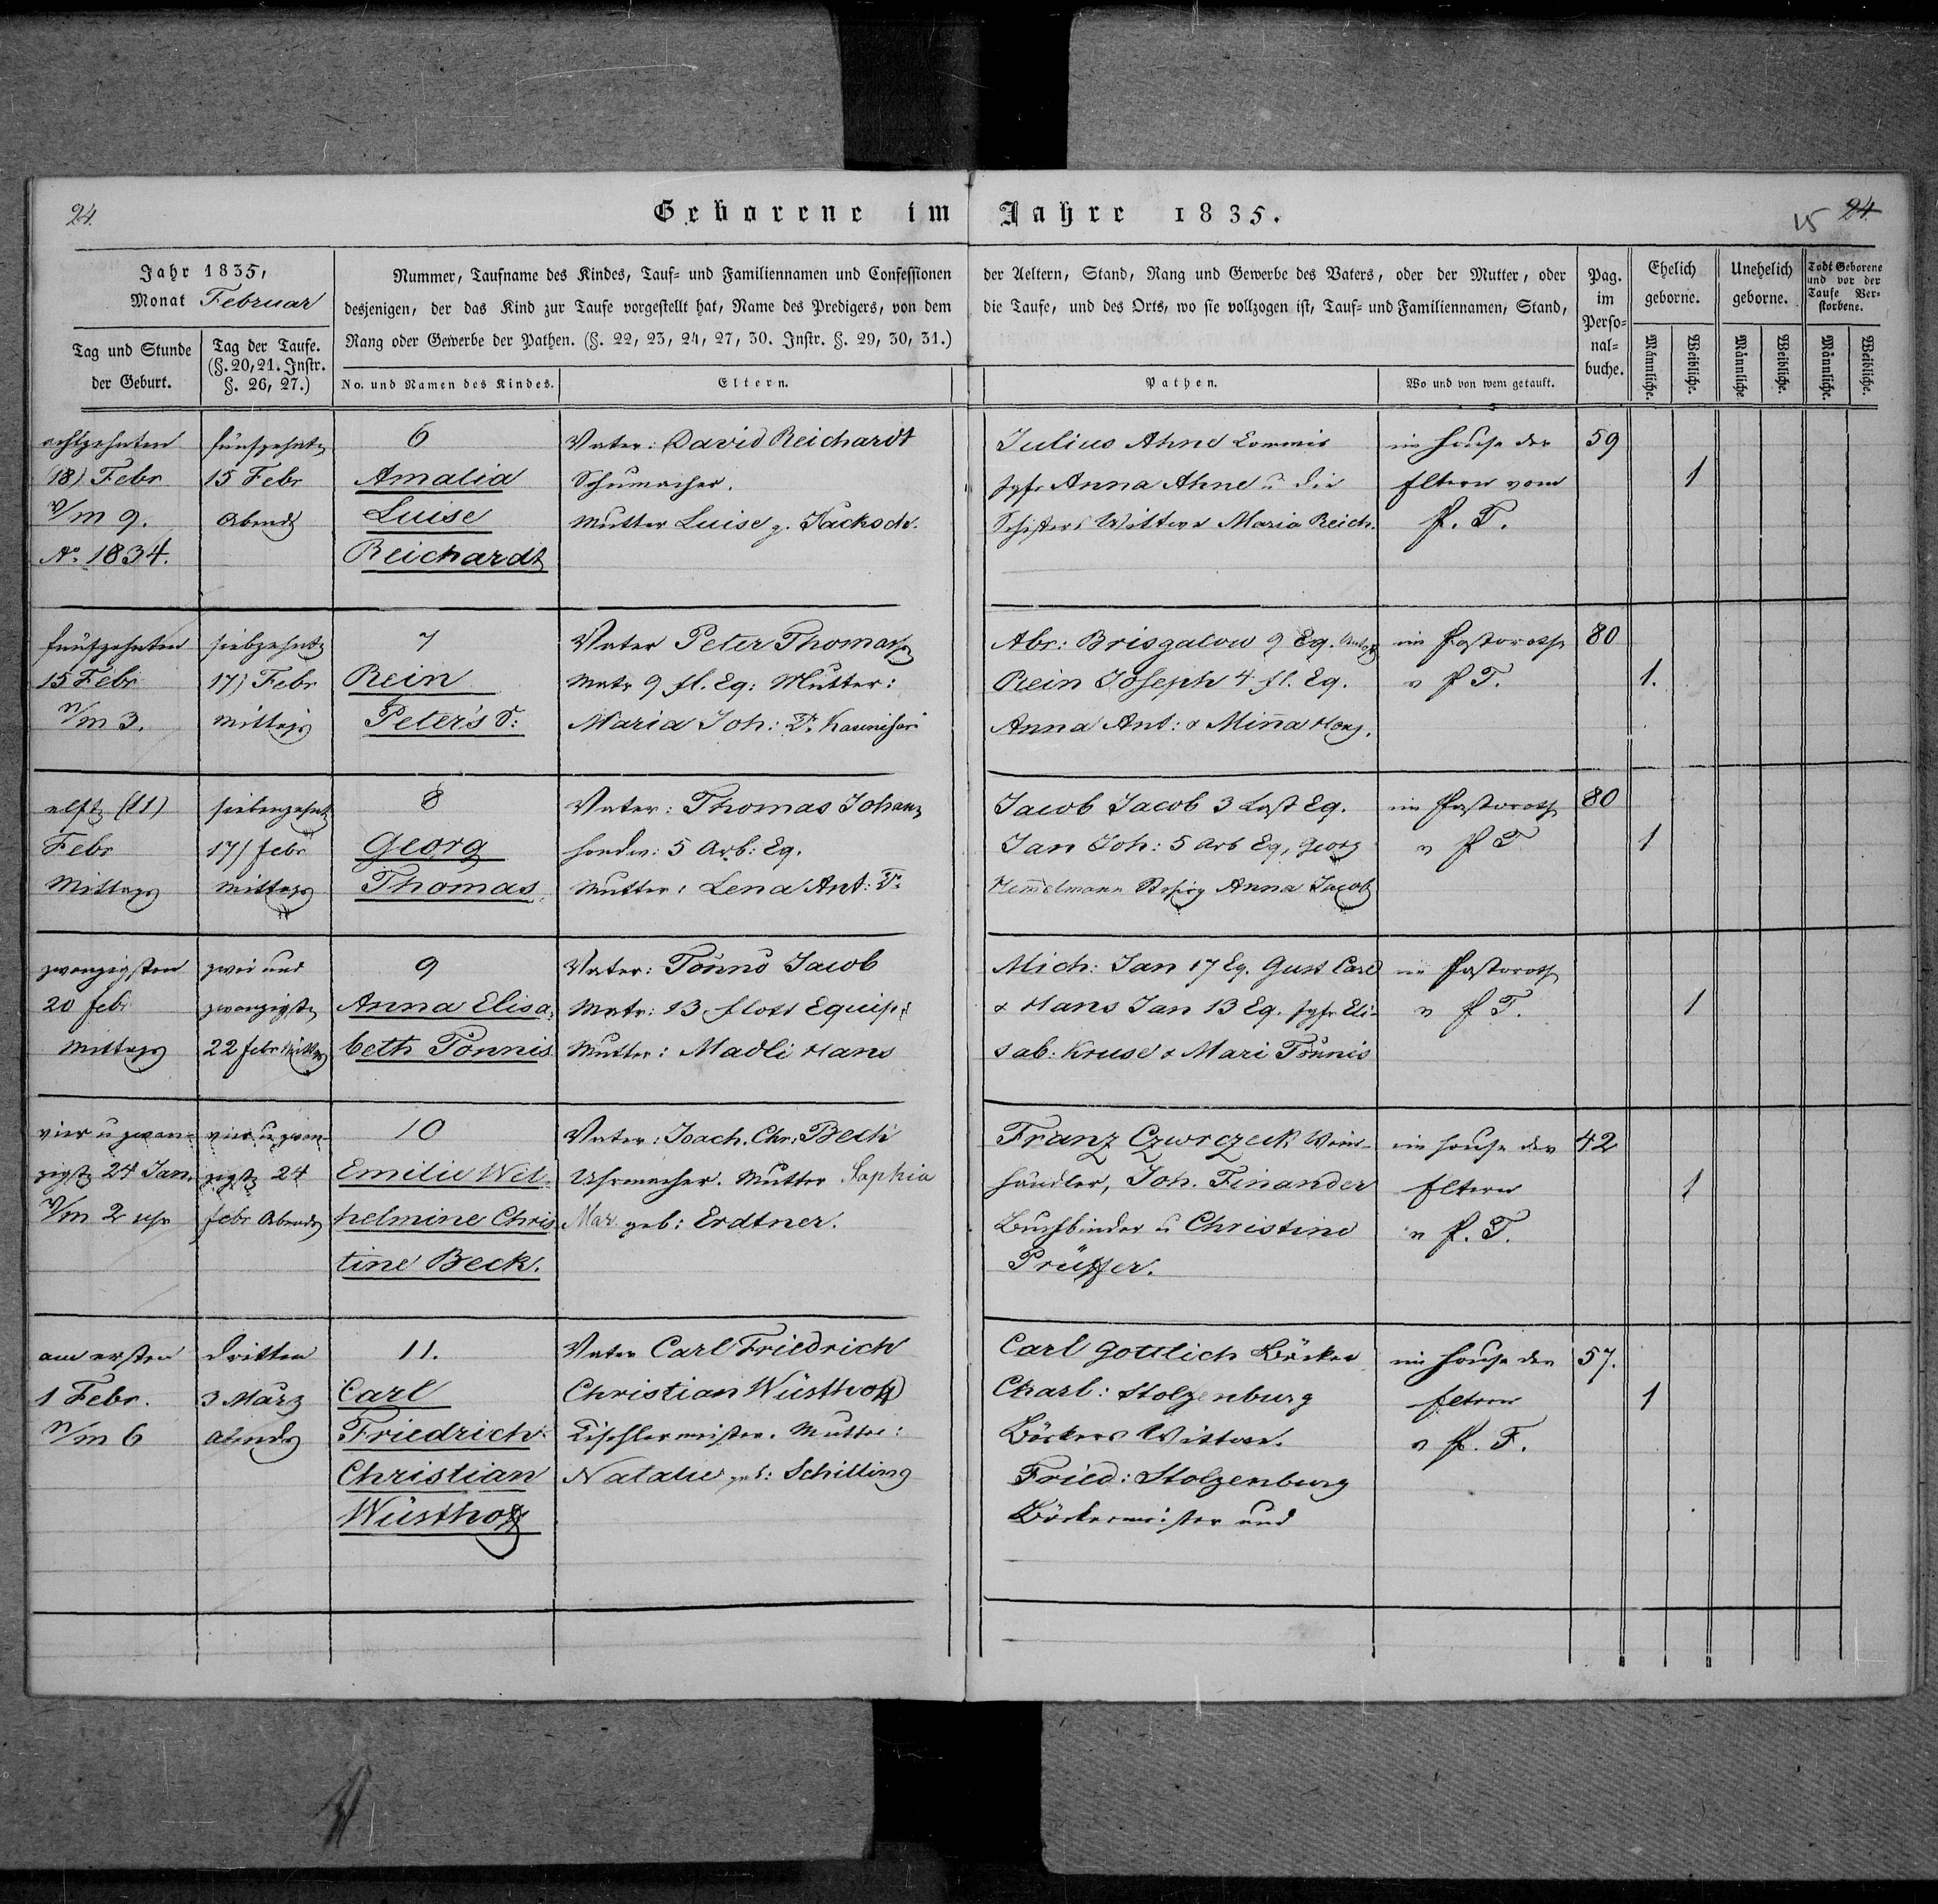 24.
Geborene im Jahre 1835.
15 24
Jahr 1835,
Monat Februar
Tag und Stunde
der Geburt.
Tag der Taufe.
(§. 20, 21. Instr.
§. 26, 27.)
Nummer, Taufname des Kindes, Tauf= und Familiennamen und Confessionen der Aeltern, Stand, Rang und Gewerbe des Vaters, oder der Mutter, oder
desjenigen, der das Kind zur Taufe vorgestellt hat, Name des Predigers, von dem die Taufe, und des Orts, wo sie vollzogen ist, Tauf= und Familiennamen, Stand,
Rang oder Gewerbe der Pathen. (§. 22, 23, 24, 27, 30. Instr. §. 29, 30, 31.)
No. und Namen des Kindes.
Eltern.
Pathen.
Wo und von wem getauft.
Pag.
im
Perso=
nal=
buche.
Ehelich
geborne.
Unehelich
geborne.
Todt Geborene
und vor der
Taufe Ver=
storbene.
Männliche.
Weibliche.
Männliche
Weibliche.
Männliche.
Weibliche.
achtzehnten
(18) Febr
V/m 9.
Ao. 1834.
fünfzehnt
15 Febr
Abends
6
Amalia
Luise
Reichardt
Vater: David Reichardt
Schumacher.
Mutter Luise g.
Julius Ahne Commis
Jgfr Anna Ahne u. die
Wittwe Maria Reich.
im Hause der
Eltern vom
P. T.
59
1
fünfzehnten
15 Febr
N/m 3.
siebzehnt
17) Febr
Mittags
7
Rein
Peter's S:
Vater Peter Thomas
Matr 9 fl. Eq: Mutter:
Maria Joh: T.
Abr: Brisgalow 9 Eq.
Rein Joseph 4 fl. Eq.
Anna Ant: & Mina
im Pastorath
v P T.
80
1.
elft (11)
Febr
Mittags
siebenzehnt
17/ Febr
Mittags
8
Georg
Thomas
Vater: Thomas Johann
Handw: 5 Arb: Eq.
Mutter: Lena Ant: T.
Jacob Jacob 3 Last Eq.
Jan Joh: 5 Arb Eq, Georg
Anna Jacob
im Pastorath
v P T
80
1
zwanzigsten
20 Febr
Mittags
zwei und
zwanzigst
22 Febr Mittags
9
Anna Elisa=
beth Tönnis
Vater: Tönno Jacob
Matr: 13 flott Equip:
Mutter: Madli Hans
Mich: Jan 17 Eq. Gust Carl
& Hans Jan 13 Eq. Jgfr Eli-
sab: Kruse & Mari Tönnis
im Pastorath
v P T.
1
vier u zwan=
zigst 24 Jan.
V/m 2 uhr
vier u zwan-
zigst 24
Febr Abends
10
Emilie Wil-
helmine Chris
tine Beck.
Vater: Joach. Chr: Beck
Uhrmacher. Mutter Sophia
Mar. geb: Erdtner.
Franz Czwrczeck Wein-
händler, Joh. Finander
Buchbinder u Christine
Prüffer.
im Hause der
Eltern
v P. T.
42
1
am ersten
1 Febr.
N/m 6
dritten
3 März
abends
11.
Carl
Friedrich
Christian
Wüsthoff
Vater Carl Friedrich
Christian Wüsthoff
Tischlermeister. Mutter:
Natalie geb: Schilling
Carl Gottlieb Böcker
Charl: Stolzenburg
Böckers Wittwe.
Fried: Stolzenburg
Böckermeister und
im Hause der
Eltern
v P. T.
57.
1